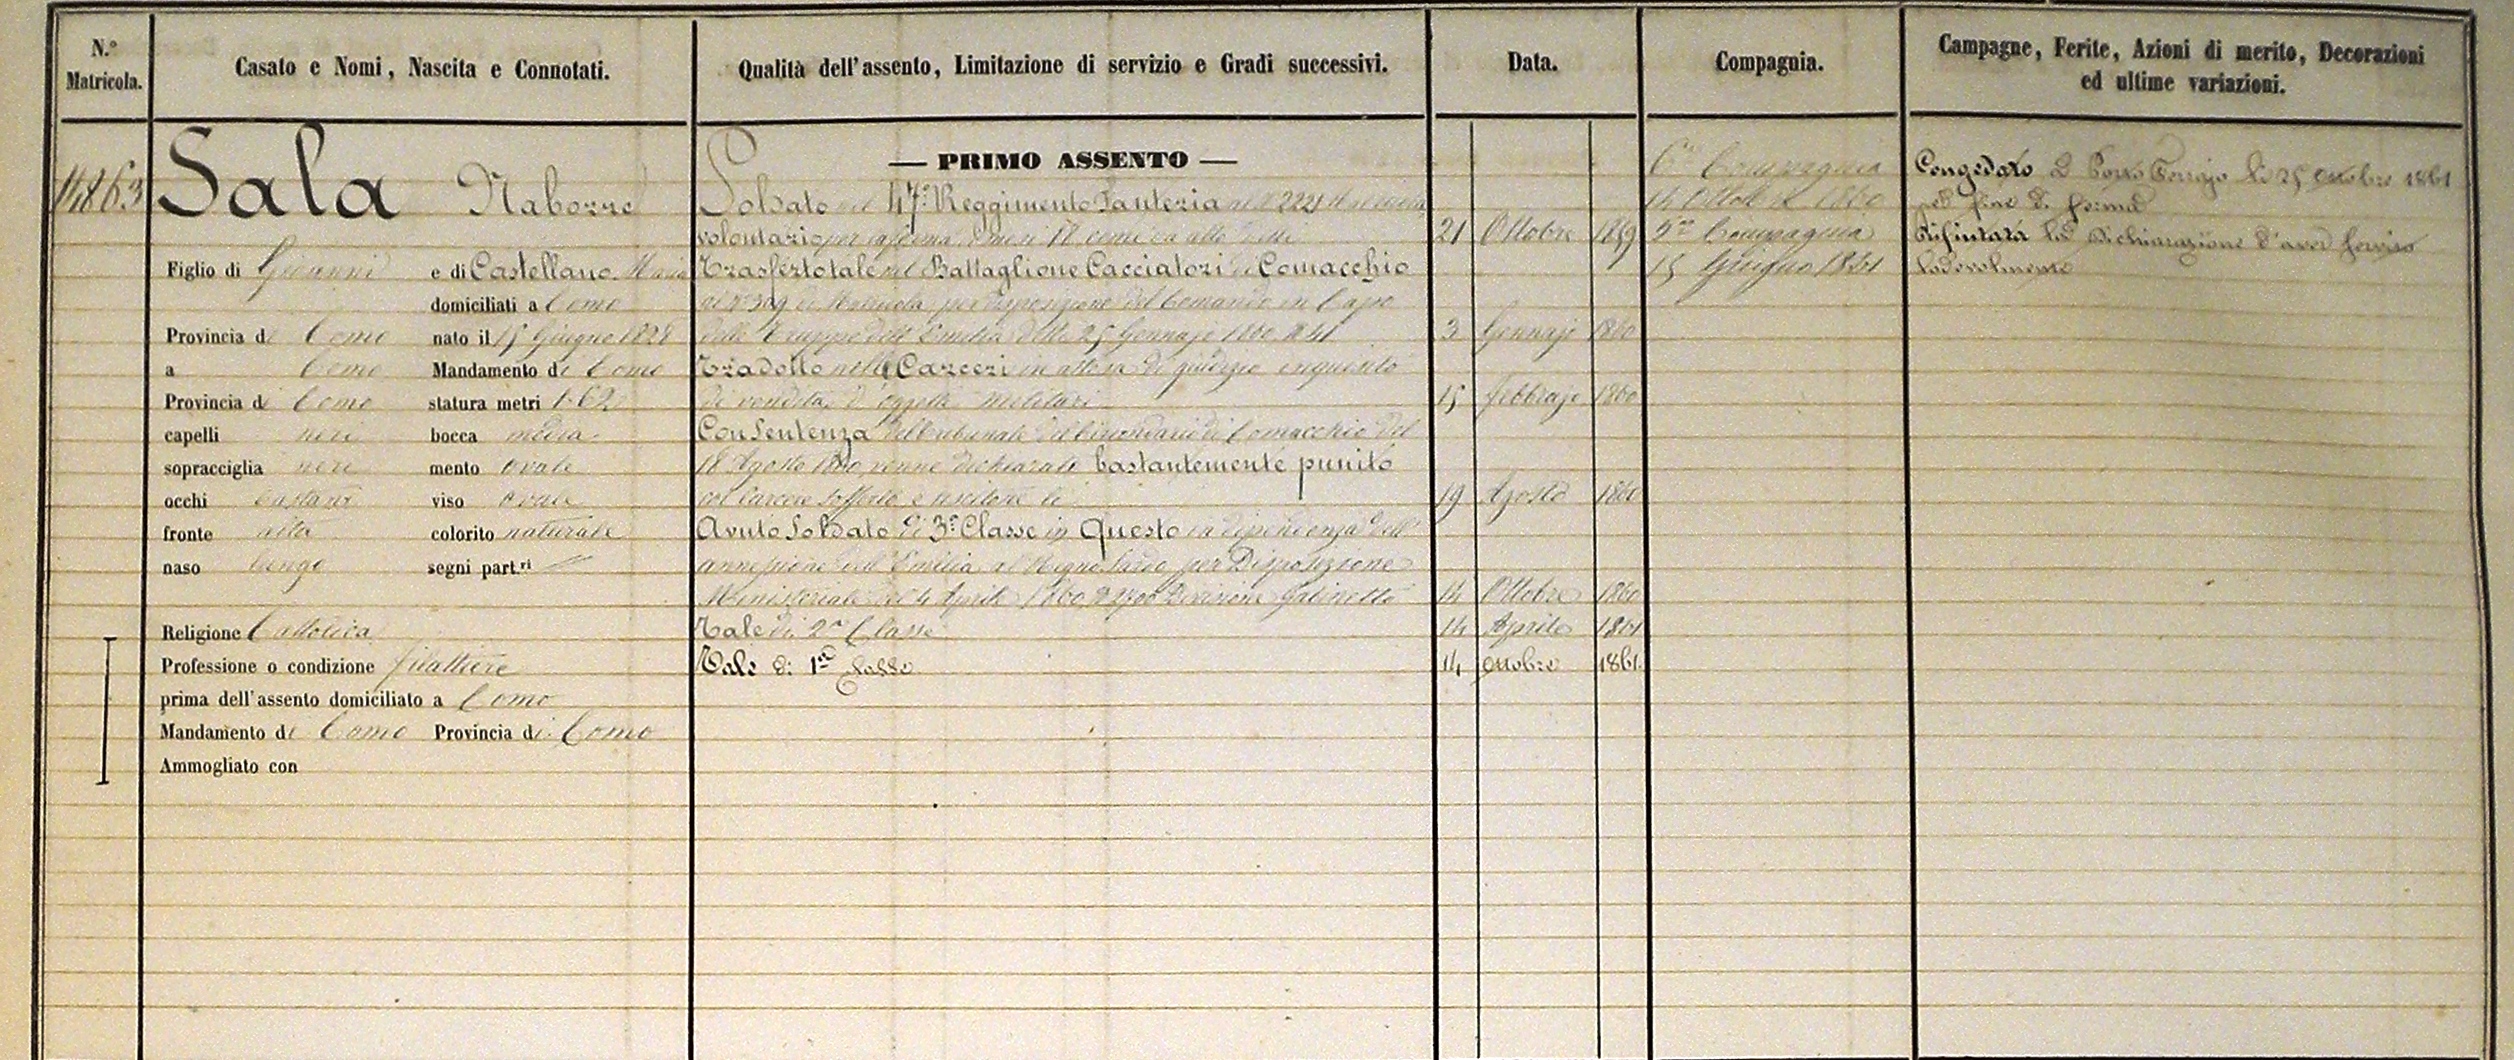 N.° Matricola.
Casato e Nomi, Nascita e Connotati.
Qualità dell'assento, Limitazione di servizio e Gradi successivi.
Data.
Compagnia.
Campagne, Ferite, Azioni di merito, Decorazioni
ed ultime variazioni.
14863
Sala Naborre
Figlio di Gianni e di Castellano Maria
domiciliati a Como
Provincia di Como nato il 15 Giugno 1828
a Como Mandamento di Como
Provincia di Como statura metri 1.62
capelli neri bocca media
sopracciglia nere mento ovale
occhi castani viso ovale
fronte alta colorito naturale
naso lungo segni part.ri
Religione Cattolica
Professione o condizione filattiere
prima dell'assento domiciliato a Como
Mandamento di Como Provincia di Como
Ammogliato con
— PRIMO ASSENTO —
Soldato nel 47° Reggimento Fanteria al N 2221 Matricola
volontario per la ferma di mesi 18 21 Ottobre 1859
Trasferto tale nel Battaglione Cacciatori di Comacchio
al N° 309 di Matricola per disposizione del Comando in Capo
delle Truppe dell'Emilia delli 25 Gennajo 1860 N 41 3 Gennajo 1860
Tradotto nelle Carceri in attesa di giudizio inquisito
di vendita d'oggetti militari 15 febbrajo 1860
Con Sentenza del Tribunale del Circondario di Comacchio del
18 Agosto 1860 venne dichiarato bastantemente punito
col Carcere sofferto e uscitone li 19 Agosto 1860
Avuto Soldato di 3ª Classe in Questo in dipendenza dell'
annessione dell'Emilia al Regno Sardo per Disposizione
Ministeriale del 4 Aprile 1860 Divisione Gabinetto 14 Ottobre 1860
Tale di 2ª Classe 14 Aprile 1861
Tale di 1ª Classe 14 Ottobre 1861
6ª Compagnia
14 Ottobre 1860
5ª Compagnia
15 Giugno 1861
Congedato a Porto Ferrajo li 25 Ottobre 1861
per fine di ferma
Rifiutata la Dichiarazione d'aver servito
lodevolmente